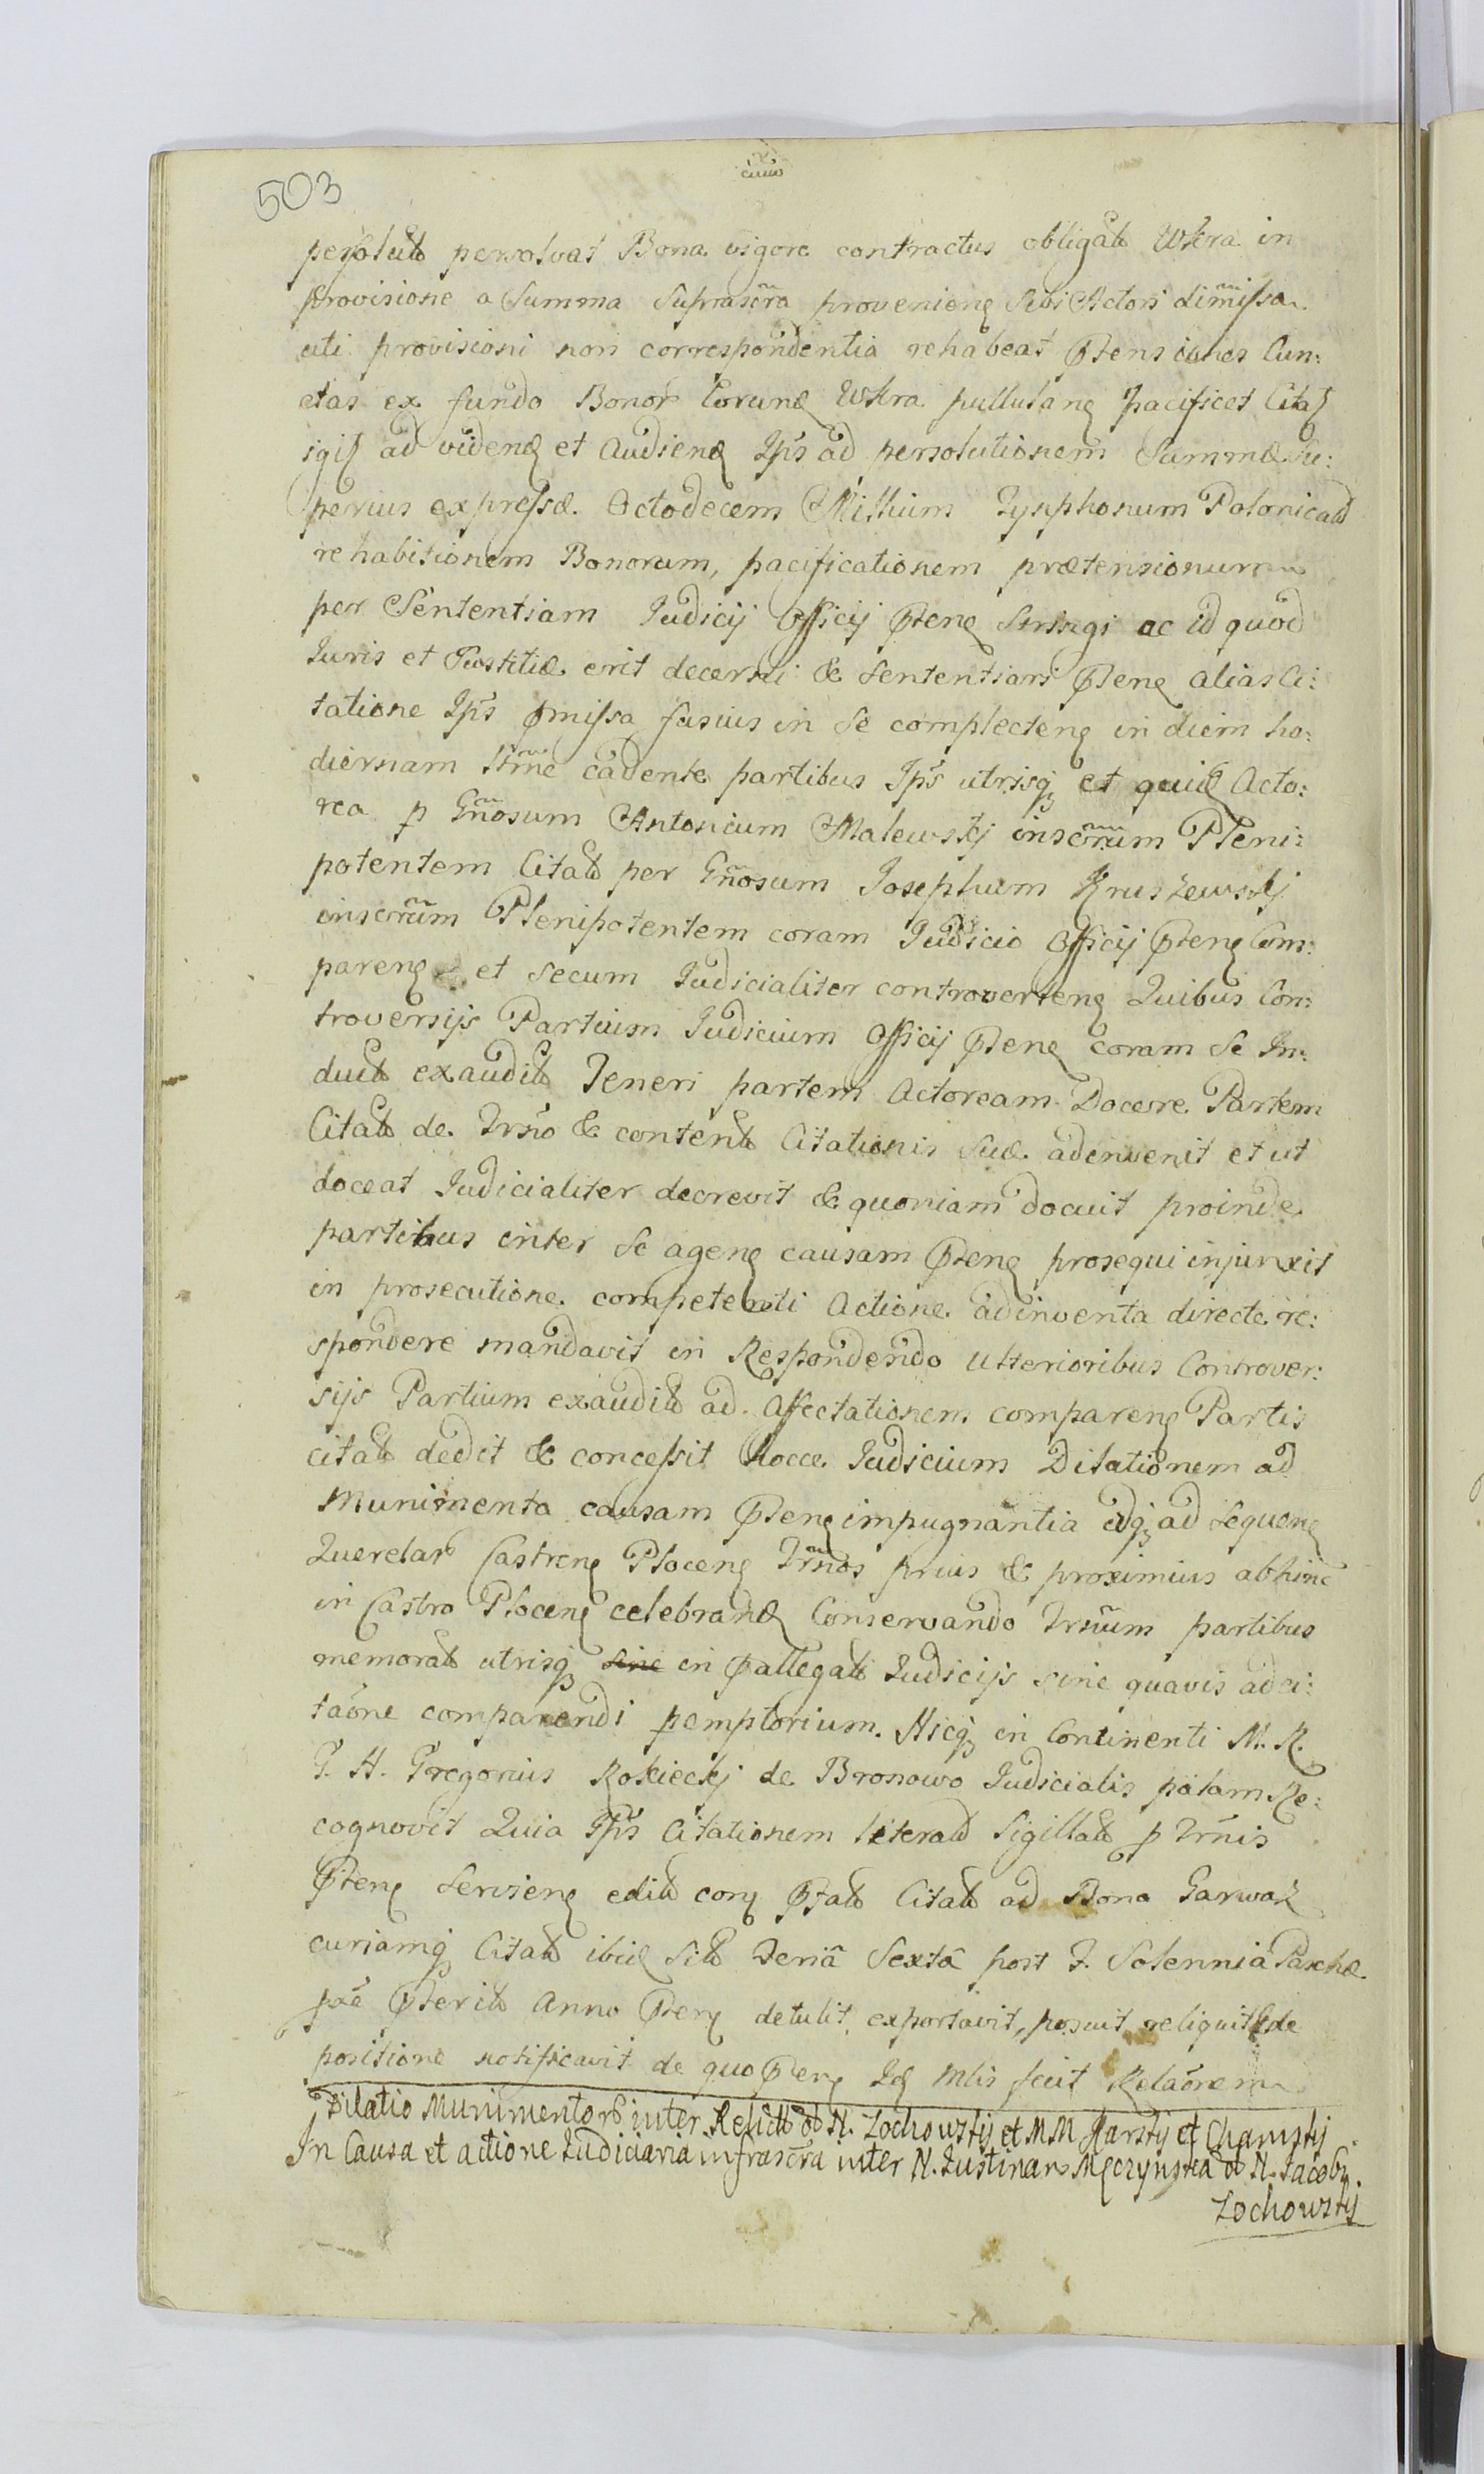 503
persoluto persolvat Bona vigore contractus obligata Wkra in
Provisione a Summa Suprascra provenieng Sibi Actori dimissa
uti provisioni non correspondentia rehabeat Ptensiones Cun:
ctas ex fundo Bonor eorund Wkra pullulang pacificet Citat
igit ad videnđ et Audienđ Ips ad persolutionem Summæ Su:
perius expressæ Octodecem Millium Tynphonum Polonical
rehabitionem Bonorum, pacificationem prætensionum
per Sententiam Judicij Officij Pteng Stringi ac id quod
Juris et Justitiæ erit decerni & Sententiari Pteng alias Ci:
tatione Ips Pmissa fusius in Se complecteng in diem ho:
diernam Trmne cadente partibus Ips utrisq et quid Acto:
rea p Gnosum Antonium Malewskj inscrum Pleni:
potentem Citata per Gnosum Josephum Kruszewskj
inscrum Plenipotentem coram Judicio Officij Pteng Com:
pareng et Secum Judicialiter controverteng Quibus Con:
troversijs Partium Judicium Officij Pteng coram Se In:
duct exaudit Teneri partem Actoream Docere Partem
Citat de Trno & content Citationis Suæ adinvenit et ut
doceat Judicialiter decrevit & quoniam docuit proinde
partibus inter Se ageng causam Pteng prosequi injunxit
in prosecutione competenti Actione adinventa directe re:
spondere mandavit in Respondendo Ulterioribus Controver:
sijs Partium exaudit ad Affectationem compareng Partis
citat dedit & concessit Hocce Judicium Dilationem ad
Munimenta causam Pteng impugnantia idq ad Sequeng
Querelar Castreng Ploceng Trnos prius & proximius abhinc
in Castro Ploceng celebranđ Conservando Trnum partibus
memorat utrisq sine in Pallegat Judicijs sine quavis adci:
taone comparendi pemptorium. Hicq in Continenti M. R.
G. H. Gregorius Rokickj de Bronowo Judicialis palam Re:
cognovit Quia Ips Citationem literal Sigillat p Trnis
Pteng Servieng edit cong Pfat Citat ad Bona Garwarz
curiamq Citat ibiđ Sit Feria Sexta post F. Solennia Paschæ
pxe Pterit Anno Pteng detulit, exportavit, posuit reliquit & de
positione notificavit de quo Pteng Iđ Mlis fecit Relaonem
Dilatio Munimentor inter Relict ol N. Zochowskj et MM Karskj et Chamskj
In Causa et actione Judiciaria infrascra inter N. Justinam Męczynska ol N. Jacobi
Zochowskj